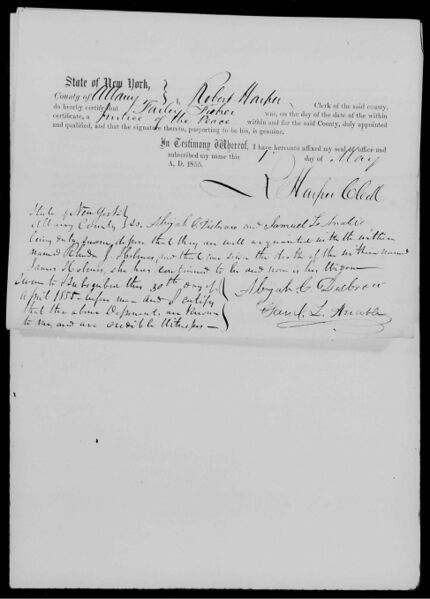 State of New York,
County of Albany } I, Robert Harper Clerk of the said county,
do hereby certify that Farley Fisher was, on the day of the date of the within
certificate, a Justice of the Peace within and for the said County, duly appointed
and qualified, and that the signature thereto, purporting to be his, is genuine.
In Testimony Whereof, I have hereunto affixed my seal of office and
subscribed my name this 1 day of May
A. D. 1855.
R Harper Clerk
State of New York }
Albany County } ss. Abijah C. and Samuel L. Anable
being duly sworn depose that they are well acquainted with the within
named J. Holmes, and that ever since the death of the within named
James Holmes, she has continued to be and now is his Widow
Sworn to & Subscribed this 30th day of
April 1855 before me and I certify
that the above Deponents are known
to me and are credible Witnesses
Abijah C.
Saml. L. Anable